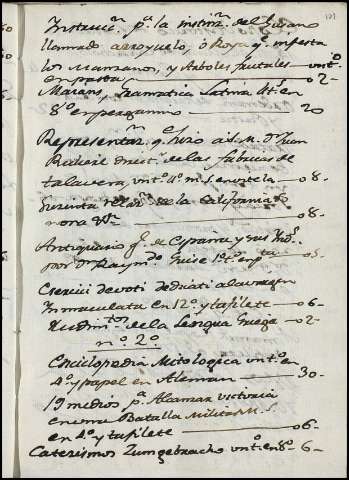 Instrucn. pa. la instinn. del Gusano
llamado arroyuelo, ò Roya q. infesta
los Manzanos, y Arboles frutales — unto.
en pasta — o 2-
Marans, Gramatica Latina 1t. en
8º en pergamino — 20
Representan. q. hizo a S.M. Dn. Juan
Rulier direct. de las fabricas de
talavera, unto. 4º m.s. en tela — o 8-
de la California
nora &a. — o 8-
Antiquario gl. de España y sus Inds.
por Dn. Raymdo. Guise 1º to. en pta. — o 5-
Exercici devoti dedicati a la vergen
Immaculata en 12º y tafilete — o 6-
Rudimtos. de la Lengua Griega — o 2-
nº. 2º
Enciclopedia Mitologica unto. en
4º y papel en Aleman — 30-
19 medios pa. Alcanzar victoria
en una Batalla Militar M.S.
en 4º y tafilete — o 6-
Catecismos unto. en 8º- 6-